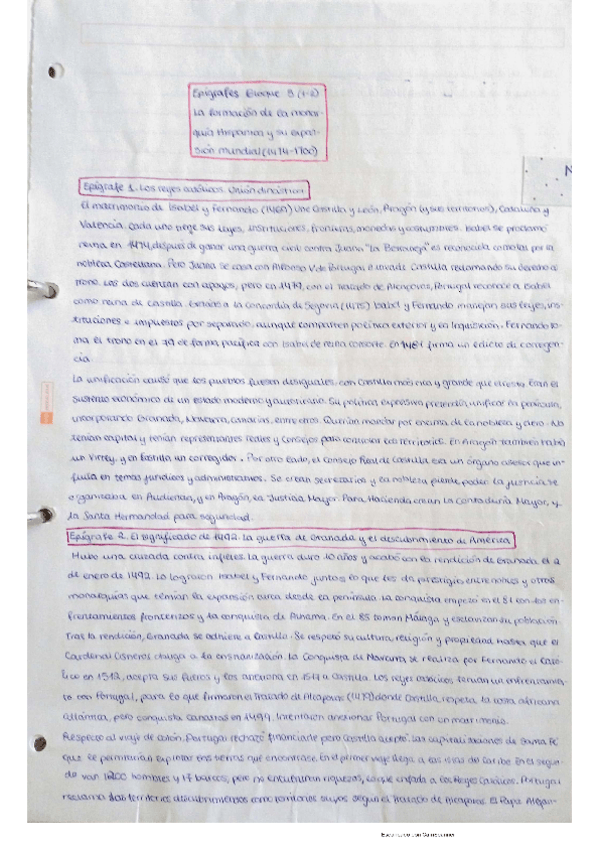 Epígrafes Bloque 3 (1-2)
La formación de la monar-
quía Hispánica y su expan-
sión mundial (1474-1700)
N
Epígrafe 1. Los reyes católicos. Unión dinástica
El matrimonio de Isabel y Fernando (1469) une Castilla y León, Aragón (y sus territorios), Cataluña y
Valencia. Cada uno tiene sus leyes, instituciones, fronteras, monedas y costumbres. Isabel se proclamó
reina en 1474, después de ganar una guerra civil contra Juana "La Beltraneja" es reconocida como tal por la
nobleza Castellana. Pero Juana se casa con Alfonso V de Portugal e invade Castilla reclamando su derecho al
trono. Los dos cuentan con apoyos, pero en 1479, con el tratado de Alcaçovas, Portugal reconoce a Isabel
como reina de Castilla. Gracias a la concordia de Segovia (1475) Isabel y Fernando manejan sus leyes, ins-
tituciones e impuestos por separado, aunque comparten política exterior y la Inquisición. Fernando to-
ma el trono en el 79 de forma pacífica con Isabel de reina consorte. En 1481 firma un edicto de corregen-
cia.
La unificación causó que los pueblos fuesen desiguales, con Castilla más rica y grande que el resto. Eran el
sustento económico de un estado moderno y autoritario. Su política expresiva pretendía unificar la península,
incorporando Granada, Navarra, Canarias, entre otros. Querían mandar por encima de la nobleza y clero. No
tenían capital y tenían representantes reales y Consejos para controlar los territorios. En Aragón también había
un Virrey, y en Castilla un corregidor. Por otro lado, el consejo Real de Castilla era un órgano asesor que in-
fluía en temas jurídicos y administrativos. Se crean secretarios y la nobleza pierde poder. La justicia se
organizaba en Audiencia, y en Aragón, la Justicia Mayor. Para Hacienda crean la Contaduría Mayor, y
la Santa Hermandad para seguridad.
Epígrafe 2. El significado de 1492. La guerra de Granada y el descubrimiento de América
Hubo una cruzada contra infieles. La guerra duró 10 años y acabó con la rendición de Granada el 2
de enero de 1492. Lo lograron Isabel y Fernando juntos lo que les da prestigio entre nobles y otras
monarquías que temían la expansión turca desde la península. La conquista empezó en el 81 con los en-
frentamientos fronterizos y la conquista de Alhama. En el 85 toman Málaga y esclavizan su población.
Tras la rendición, Granada se adhiere a Castilla. Se respetó su cultura, religión y propiedad hasta que el
Cardenal Cisneros obliga a la cristianización. La Conquista de Navarra se realiza por Fernando el Cató-
lico en 1512, acepta sus fueros y los anexiona en 1517 a Castilla. Los reyes católicos tenían un enfrentamien-
to con Portugal, para lo que firmaron el Tratado de Alcaçovas (1479) donde Castilla, respeta la costa africana
atlántica, pero conquista Canarias en 1499. Intentaron anexionar Portugal con un matrimonio.
Respecto al viaje de Colón, Portugal rechazó financiarle pero Castilla aceptó. Las capitulaciones de Santa Fe
que le permitirían explotar las tierras que encontrase. En el primer viaje llega a las islas del Caribe. En el segun-
do van 1200 hombres y 17 barcos, pero no encuentran riquezas, lo que enfada a los Reyes Católicos. Portugal
reclama los territorios descubrimientos como territorios suyos según el tratado de Alcaçovas. El Papa Alejan-
Escaneado con CamScanner